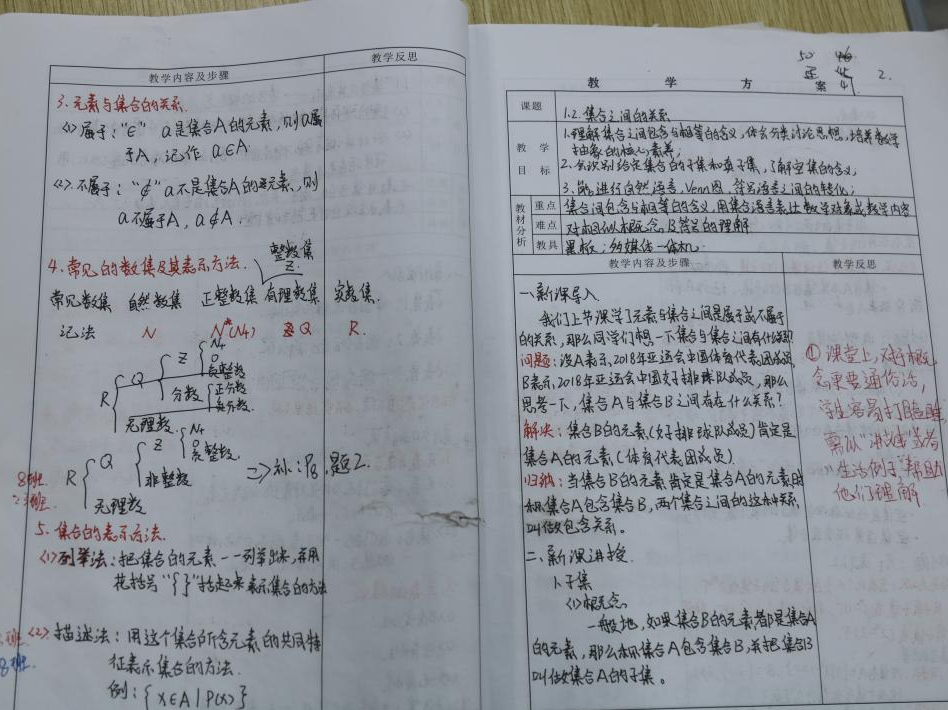 教学内容及步骤
教学反思
3.元素与集合的关系.
<1>属于:"∈" a是集合A的元素,则a属
于A,记作 a∈A.
<2>.不属于:"∉" a不是集合A的元素,则
a不属于A,a∉A.
整数集
Z.
4.常见的数集及其表示方法.
常见数集 自然数集 正整数集 有理数集 实数集.
记法 N N*(N+) Q R.
R { Q { Z { N+
0
负整数
分数 { 正分数
负分数.
无理数.
R { Q { Z { N+
0
负整数.
非整数
无理数
=>补:P8,题2.
8班
5.集合的表示方法.
<1>列举法:把集合的元素一一列举出来,并用
花括号"{ }"括起来表示集合的方法
8班.
<2>.描述法:用这个集合所含元素的共同特
征表示集合的方法.
例:{x∈A|P(x)}
50 46
2.
教 学 方 案
课题
1.2.集合之间的关系
教 学 目 标
1.理解集合之间包含与相等的含义,体会分类讨论思想,培养数学
抽象的核心素养;
2.会识别给定集合的子集和真子集,了解空集的含义;
3.能进行自然语言,Venn图,符号语言之间的转化;
教材分析
重点 集合间包含与相等的含义,用集合语言表达数学对象或数学内容
难点 对相似概念及符号的理解
教具 黑板;多媒体一体机.
教学内容及步骤
教学反思
一、新课导入
我们上节课学了元素与集合之间是属于或不属于
的关系,那么同学们想一下集合与集合之间有什么关系?
问题:设A表示2018年亚运会中国体育代表团成员,
B表示2018年亚运会中国女子排球队成员,那么
思考一下,集合A与集合B之间存在什么关系?
解决:集合B的元素(女子排球队成员)肯定是
集合A的元素(体育代表团成员)
归纳:当集合B的元素肯定是集合A的元素时
称集合A包含集合B,两个集合之间的这种关系
叫做包含关系.
二、新课讲授.
1.子集
<1>概念
一般地,如果集合B的元素都是集合A
的元素,那么称集合A包含集合B,并把集合B
叫做集合A的子集.
①课堂上,对于概
念要更通俗活,
学生容易打瞌睡,
需以"讲故事"或者
"生活例子"帮助
他们理解